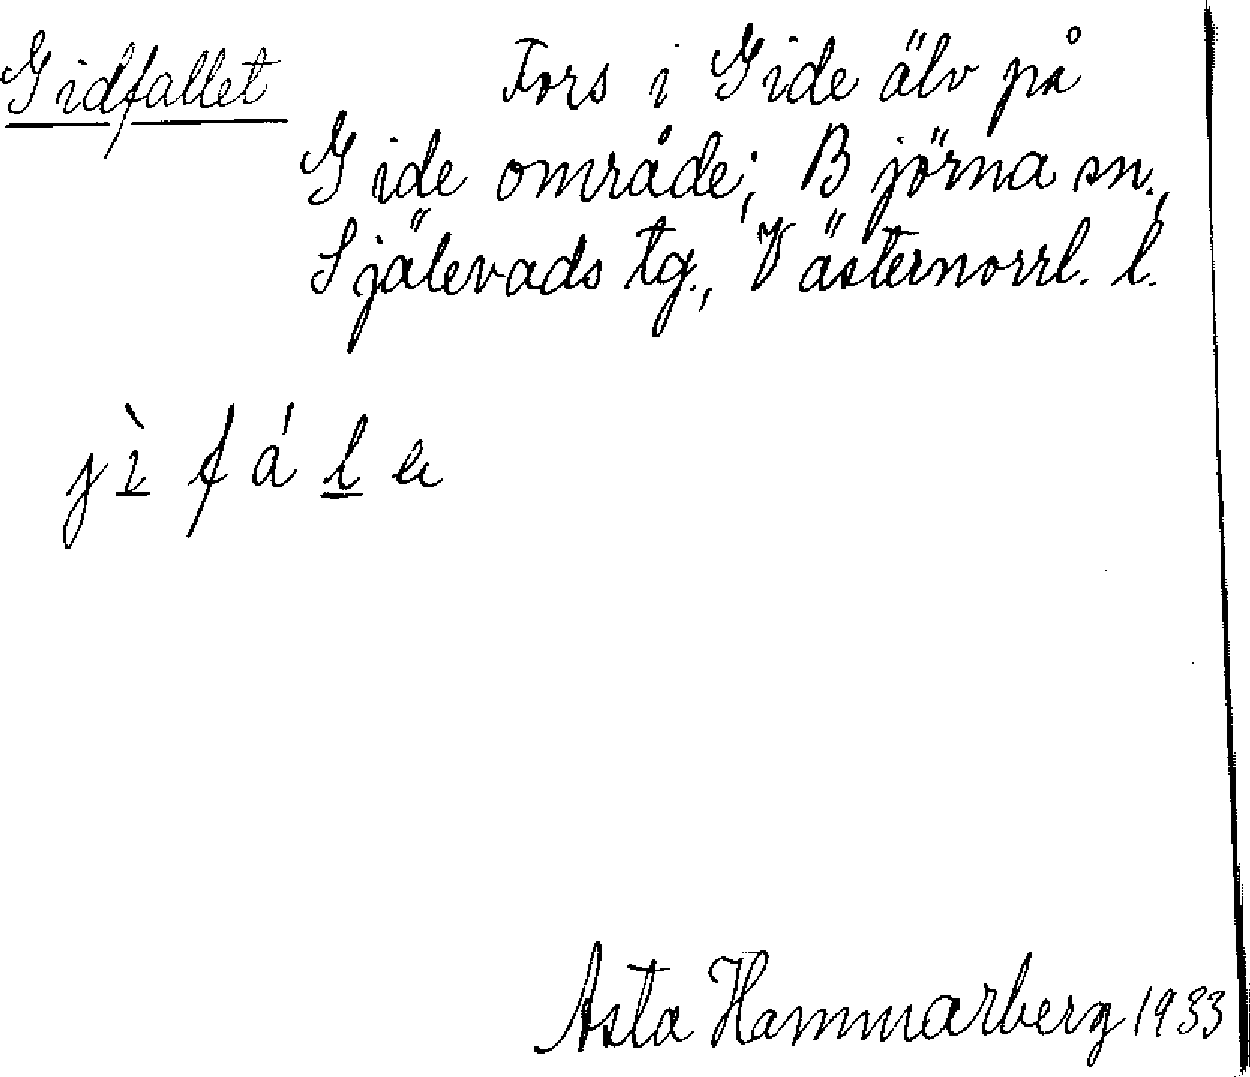 Gidfallet Fors i Gide älv på
Gide område; Björna sn.,
Själevads tg., Västernorrl. l.
jì fá l
Asta Hammarberg 1933